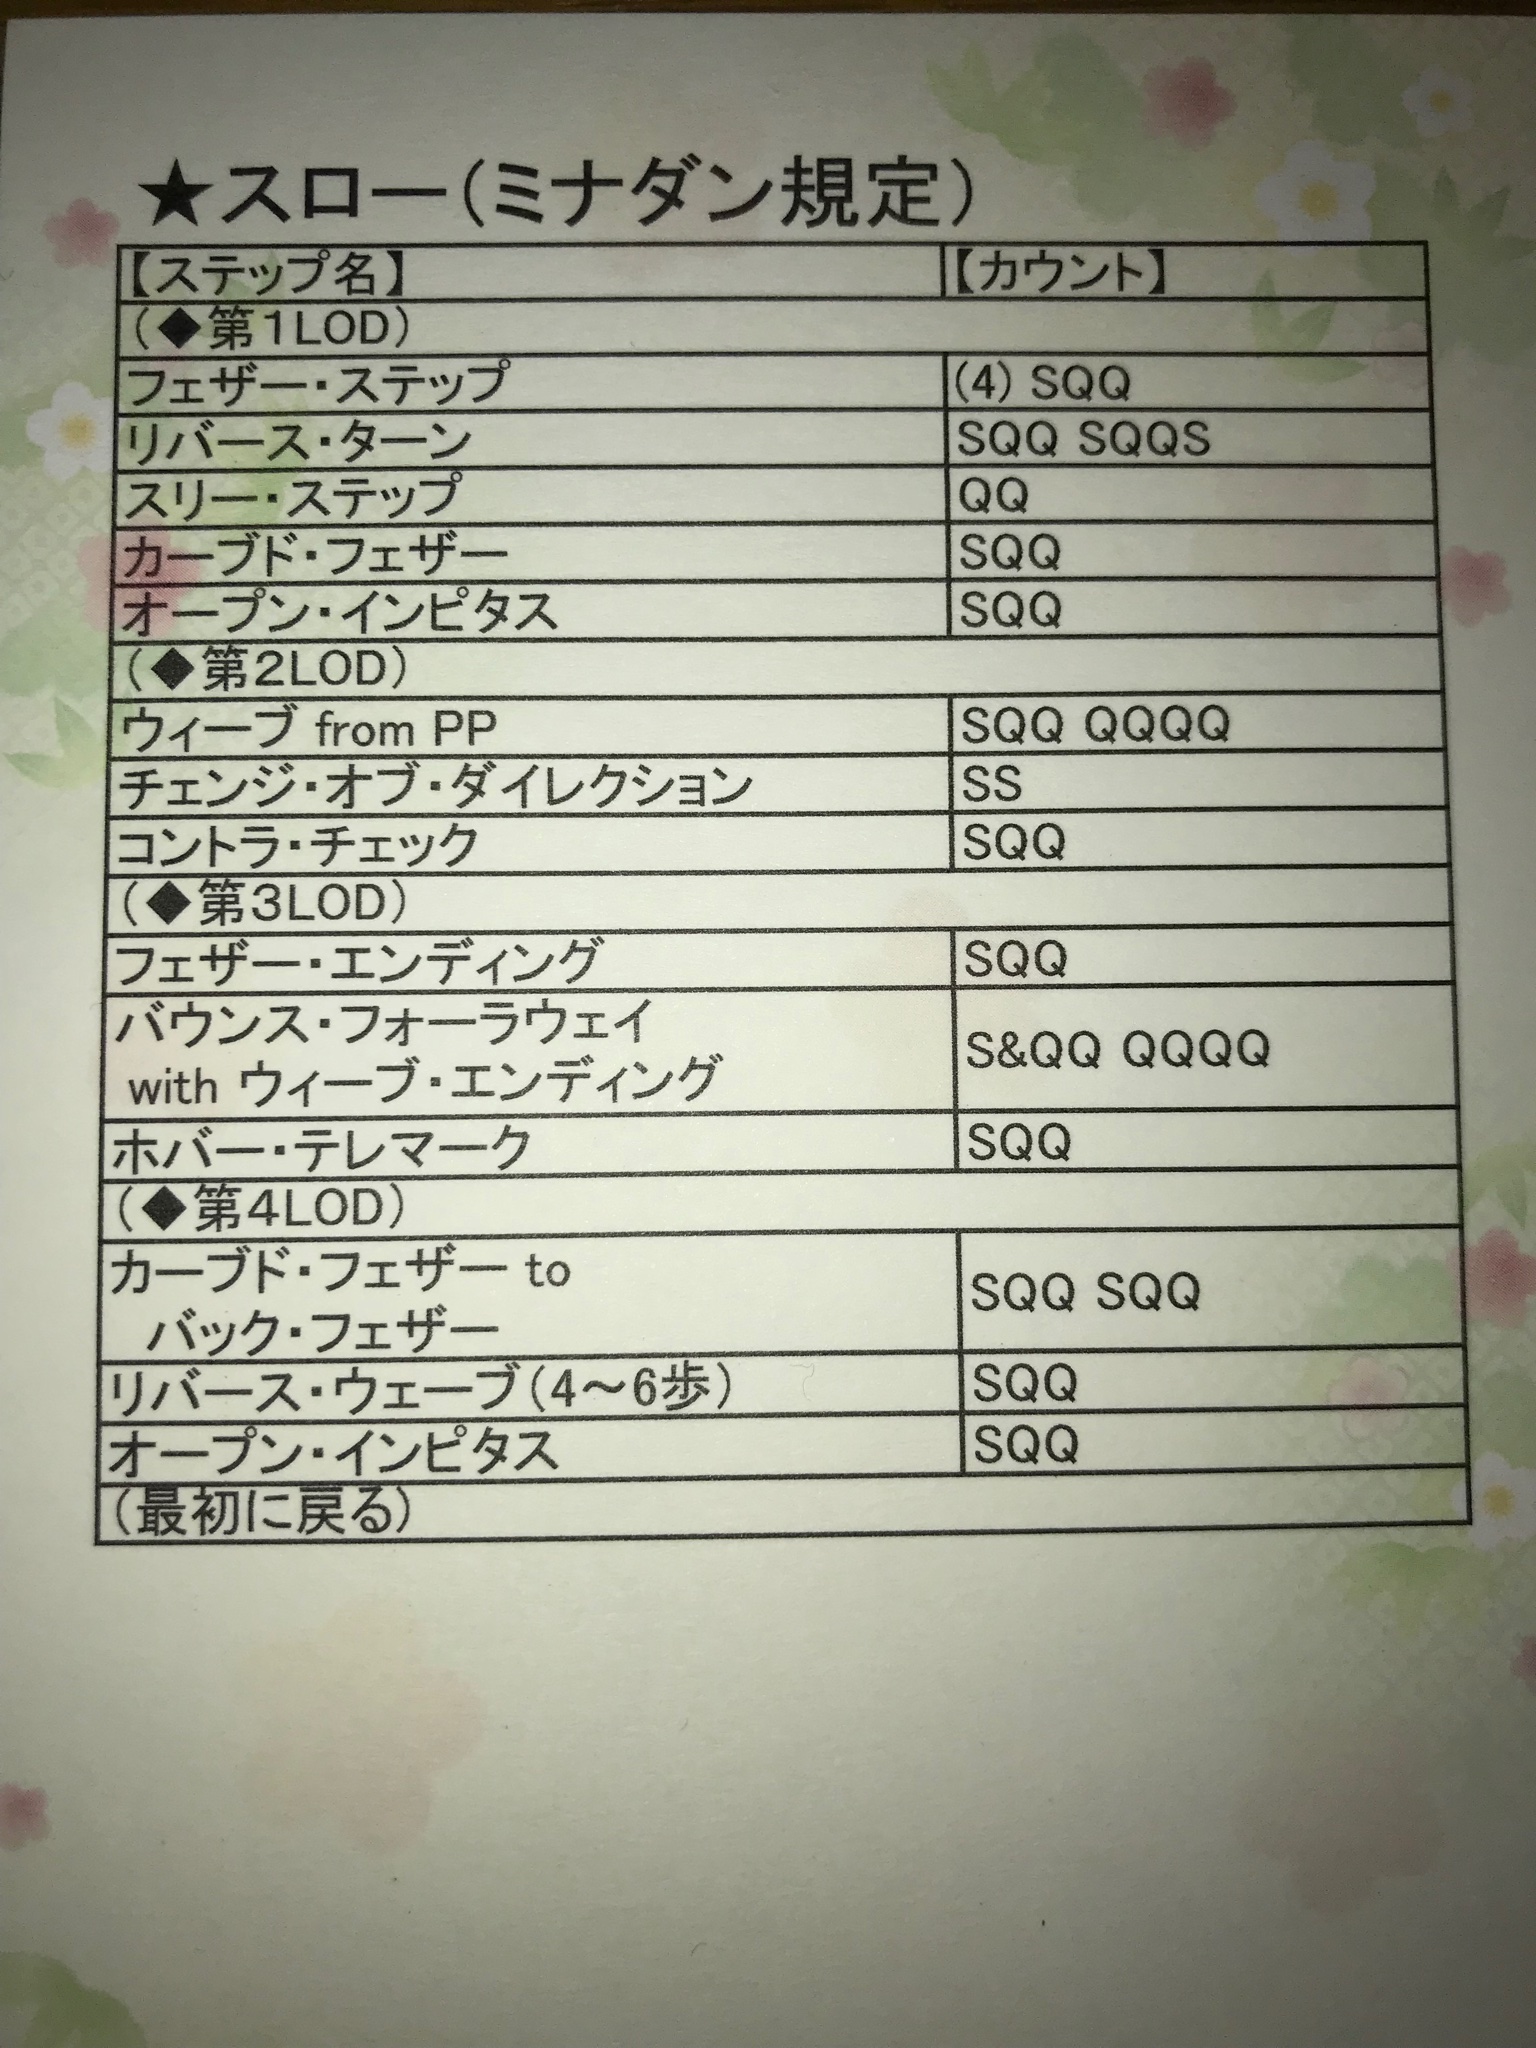 ★スロー(ミナダン規定)
【ステップ名】 【カウント】
(◆第1LOD)
フェザー・ステップ (4) SQQ
リバース・ターン SQQ SQQS
スリー・ステップ QQ
カーブド・フェザー SQQ
オープン・インピタス SQQ
(◆第2LOD)
ウィーブ from PP SQQ QQQQ
チェンジ・オブ・ダイレクション SS
コントラ・チェック SQQ
(◆第3LOD)
フェザー・エンディング SQQ
バウンス・フォーラウェイ
with ウィーブ・エンディング S&QQ QQQQ
ホバー・テレマーク SQQ
(◆第4LOD)
カーブド・フェザー to
バック・フェザー SQQ SQQ
リバース・ウェーブ(4～6歩) SQQ
オープン・インピタス SQQ
(最初に戻る)